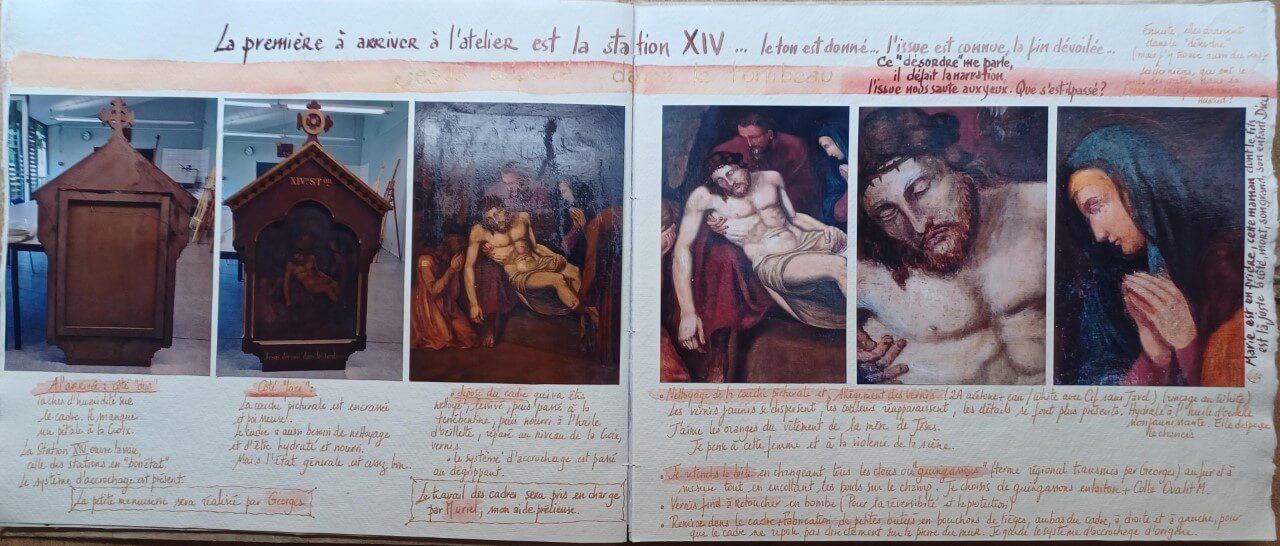 La première à arriver à l'atelier est la station XIV ... le ton est donné... l'issue est connue, la fin dévoilée...
Ce "désordre" me parle,
il défait la narration,
l'issue nous saute aux yeux. Que s'est il passé?
Ensuite, elles arrivent
dans le "désordre"
le tombeau
XIVe STon
Jesus
Marie est en prière, cette maman dont le fils
est là, juste à côté, mort, son grand, son enfant, Dieu
A l'arrivée: côté "dos"
taches d'humidité sur
le cadre. Il manque
un pétale à la Croix.
La Station XIV ouvre la voie,
celle des stations en "bon état".
Le système d'accrochage est présent.
La petite menuiserie sera réalisée par Georges
Côté "face":
La couche picturale est encrassée
et poussiéreuse.
Le cadre a aussi besoin de nettoyage
et d'être hydraté et nourri.
Mais l'Etat générale est assez bon.
dépose du cadre qui va être
nettoyé, puis passé à la
térébentine, puis nourri à l'huile
d'oeillette, réparé au niveau de la Croix,
vernis.
• le système d'accrochage est passé
au dégrippant.
Le travail des cadres sera pris en charge
par Muriel, mon aide précieuse.
• Nettoyage de la couche picturale et Allègement des vernis (2A acétone + eau / White avec Cif sans Javel) (rinçage au White)
Les vernis jaunis se dispersent, les couleurs réapparaissent, les détails se font plus présents. Hydraté à l'huile d'oeillette
Non jaunissante. Elle disperse
le chancis
J'aime les oranges du vêtement de la mère de Jésus.
Je pense à cette femme et à la violence de la scène.
• Je retends la toile en changeant tous les clous ou "quingassous" (terme régional transmis par Georges) au fur et à
mesure tout en encollant les bords sur le champ. Je choisis de quingassons en laiton + Colle Ovalit M.
• Vernis final à Retoucher en bombe (Pour la réversibilité et la protection)
• Remise dans le cadre + fabrication de petites butées en bouchons de lièges, au bas du cadre, à droite et à gauche, pour
que le cadre ne repose pas directement sur la pierre du mur. Je garde le système d'accrochage d'origine.